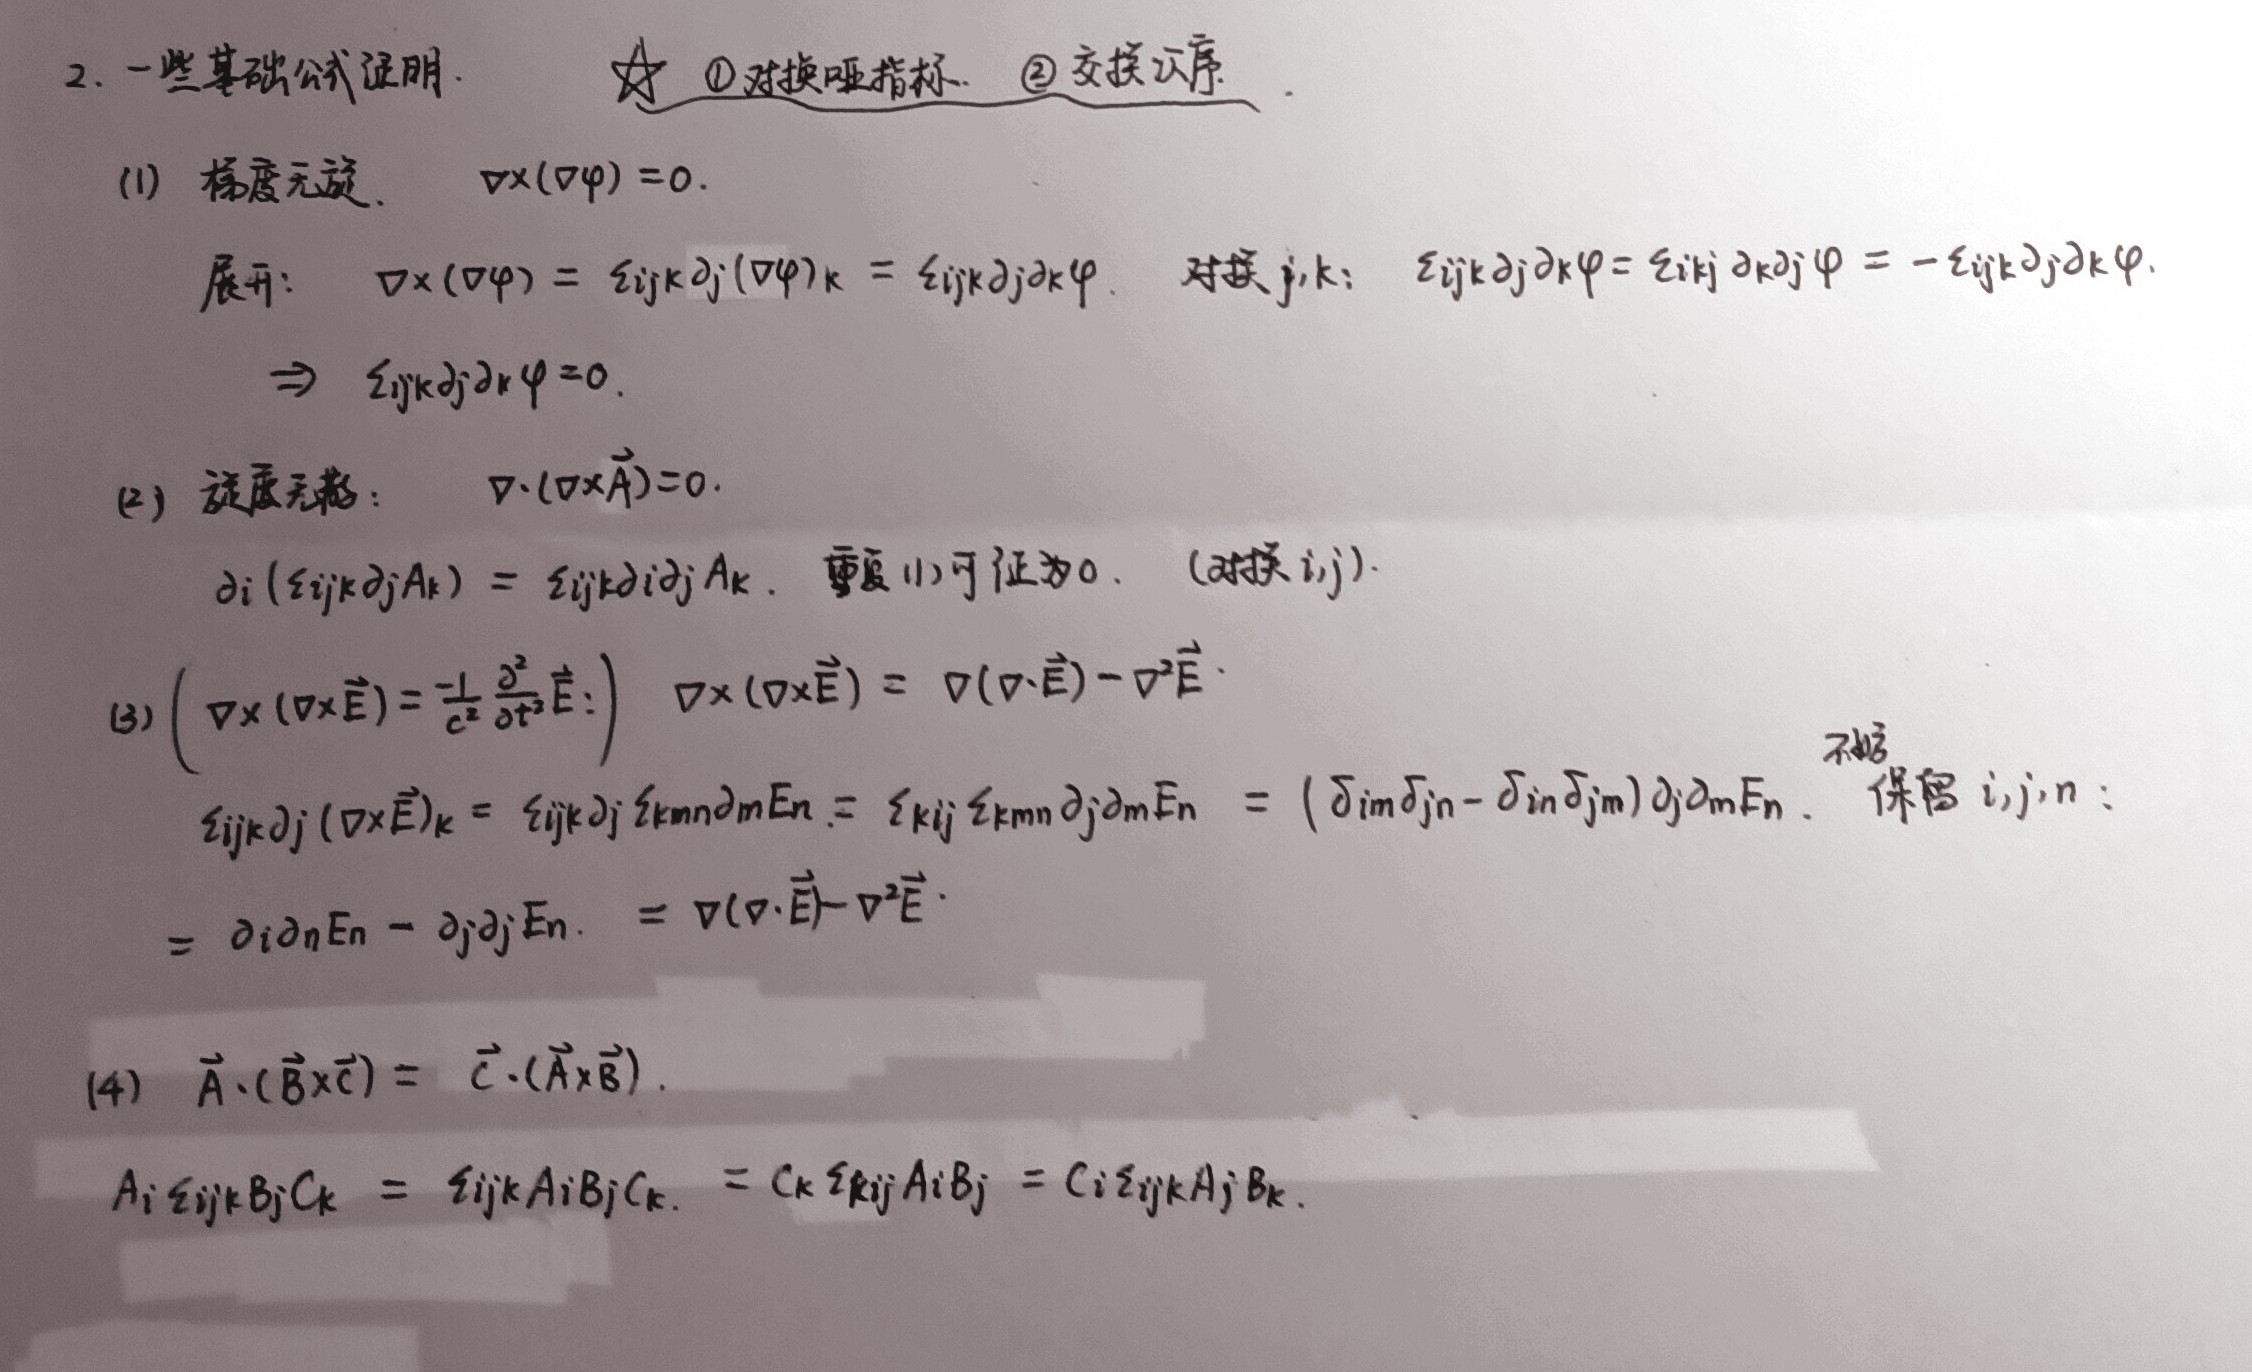 2. 一些基础公式证明. ☆ ①对换哑指标. ②交换次序.
(1) 梯度无旋. ∇×(∇φ) = 0.
展开: ∇×(∇φ) = εijk∂j(∇φ)k = εijk∂j∂kφ. 对换 j,k: εijk∂j∂kφ = εikj∂k∂jφ = -εijk∂j∂kφ.
⇒ εijk∂j∂kφ = 0.
(2) 旋度无散: ∇·(∇×A⃗) = 0.
∂i(εijk∂jAk) = εijk∂i∂jAk. 重复(1)可证为0. (对换 i,j).
(3) (∇×(∇×E⃗) = -1/c² ∂²/∂t² E⃗:) ∇×(∇×E⃗) = ∇(∇·E⃗) - ∇²E⃗.
不妨
εijk∂j(∇×E⃗)k = εijk∂jεkmn∂mEn = εkijεkmn∂j∂mEn = (δimδjn - δinδjm)∂j∂mEn. 保留 i,j,n:
= ∂i∂nEn - ∂j∂jEn. = ∇(∇·E⃗) - ∇²E⃗.
(4) A⃗·(B⃗×C⃗) = C⃗·(A⃗×B⃗).
AiεijkBjCk = εijkAiBjCk. = CkεkijAiBj = CiεijkAjBk.